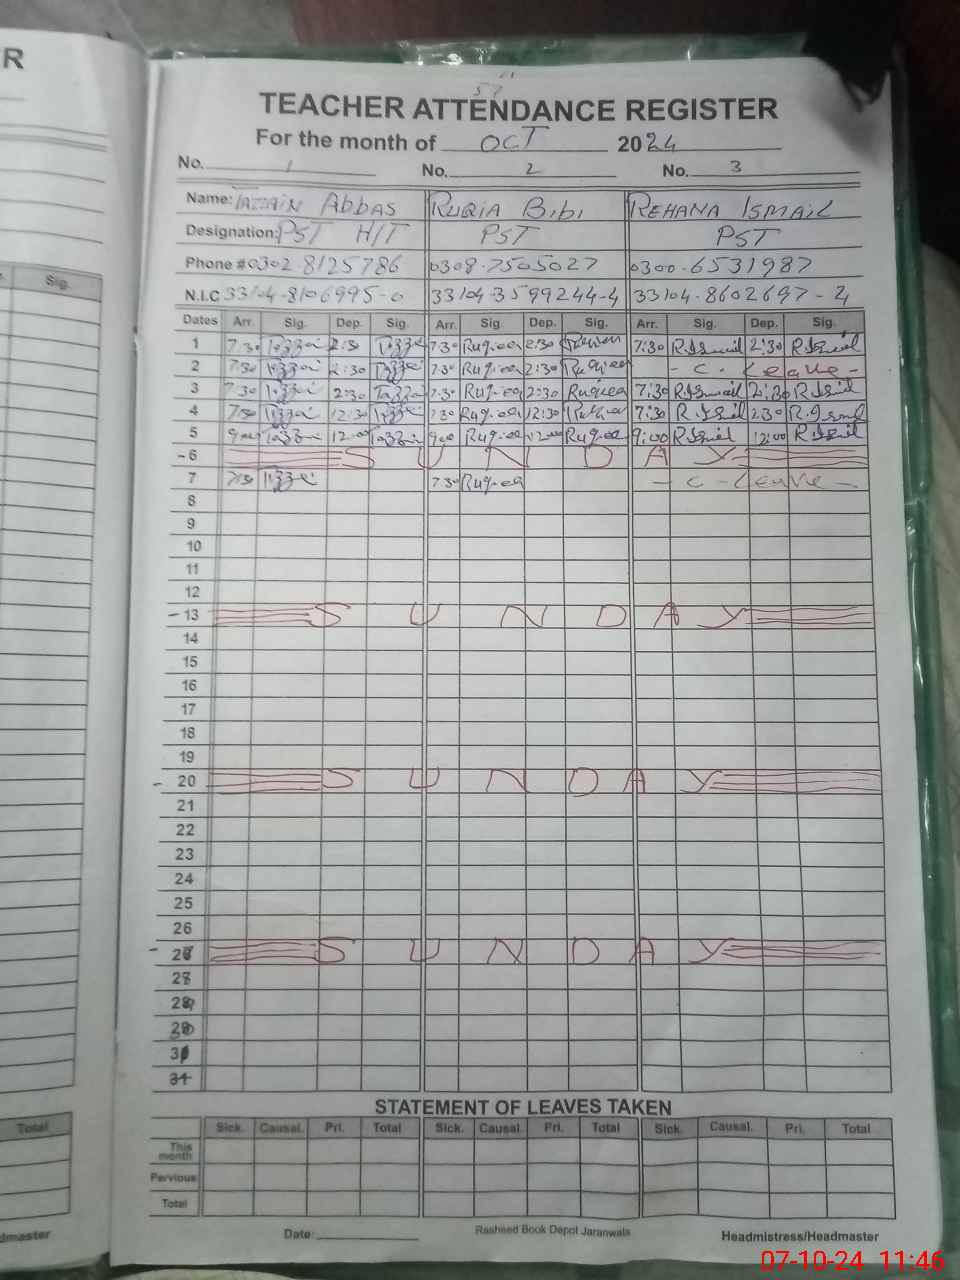 R
TEACHER ATTENDANCE REGISTER
For the month of OCT 2024
No. 1 No. 2 No. 3
Name: Abbas RUQIA BIBI REHANA ISMAIL
Designation: PST H/T PST PST
Phone # 0302-8125786 0308-7505027 0300-6531987
N.I.C 33104-8106995-0 33104-3599244-4 33104-8602697-2
Sig.
Dates Arr. Sig. Dep. Sig. Arr. Sig. Dep. Sig. Arr. Sig. Dep. Sig.
1 7:30 2:30 7:30 Ruqiea 2:30 7:30 R.Ismail 2:30 R.Ismail
2 7:30 2:30 7:30 Ruqiea 2:30 Ruqiea - C. Leave -
3 7:30 2:30 7:30 Ruqiea 2:30 Ruqiea 7:30 R.Ismail 2:30 R.Ismail
4 7:30 12:30 7:30 Ruqiea 12:30 7:30 R.Ismail 2:30 R.Ismail
5 9:00 12:00 9:00 Ruqiea 12:00 Ruqiea 9:00 R.Ismail 12:00 R.Ismail
-6 S U N D A Y
7 7:30 7:30 Ruqiea - C - Leave -
8
9
10
11
12
-13 S U N D A Y
14
15
16
17
18
19
- 20 S U N D A Y
21
22
23
24
25
26
- 27 S U N D A Y
28
29
30
31
31
STATEMENT OF LEAVES TAKEN
Total Sick. Causal. Pri. Total Sick. Causal. Pri. Total Sick. Causal. Pri. Total
This month
Pervious
Total
dmaster Date: Rasheed Book Depot Jaranwala Headmistress/Headmaster
07-10-24 11:46